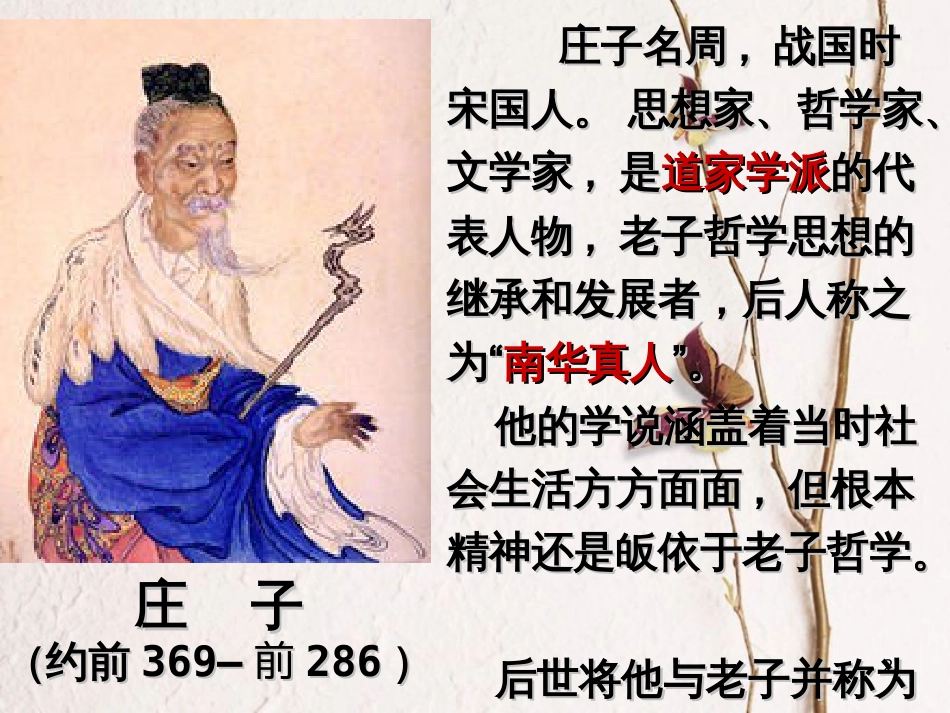 庄子名周，战国时
宋国人。思想家、哲学家、
文学家，是道家学派的代
表人物，老子哲学思想的
继承和发展者，后人称之
为“南华真人”。
他的学说涵盖着当时社
会生活方方面面，但根本
精神还是皈依于老子哲学。
后世将他与老子并称为
庄 子
（约前 369— 前 286 ）